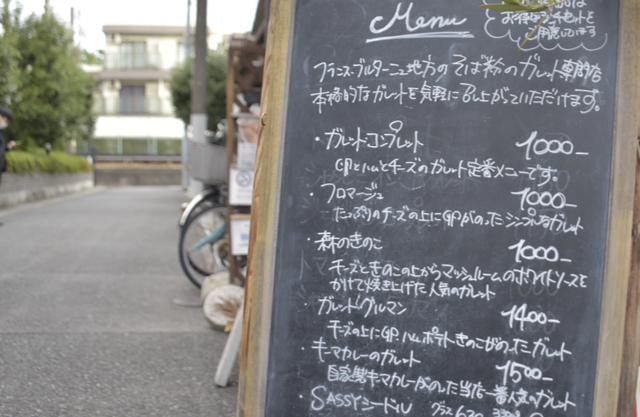 Menu
お得なランチセットを
ご用意しています
フランス・ブルターニュ地方のそば粉のガレット専門店
本格的なガレットを気軽に召し上がっていただけます。
・ガレットコンプレット 1000-
GPとハムとチーズのガレット定番メニューです。
・フロマージュ 1000-
たっぷりのチーズの上にGPがのったシンプルなガレット
・森のきのこ 1000-
チーズときのこの上からマッシュルームのホワイトソースを
かけて焼き上げた人気のガレット
・ガレットグルマン 1400-
チーズの上にGP.ハム.ポテトきのこがのったガレット
・キーマカレーのガレット 1500-
自家製キーマカレーがのった当店一番人気のガレット
・SASSYシードル グラス 620